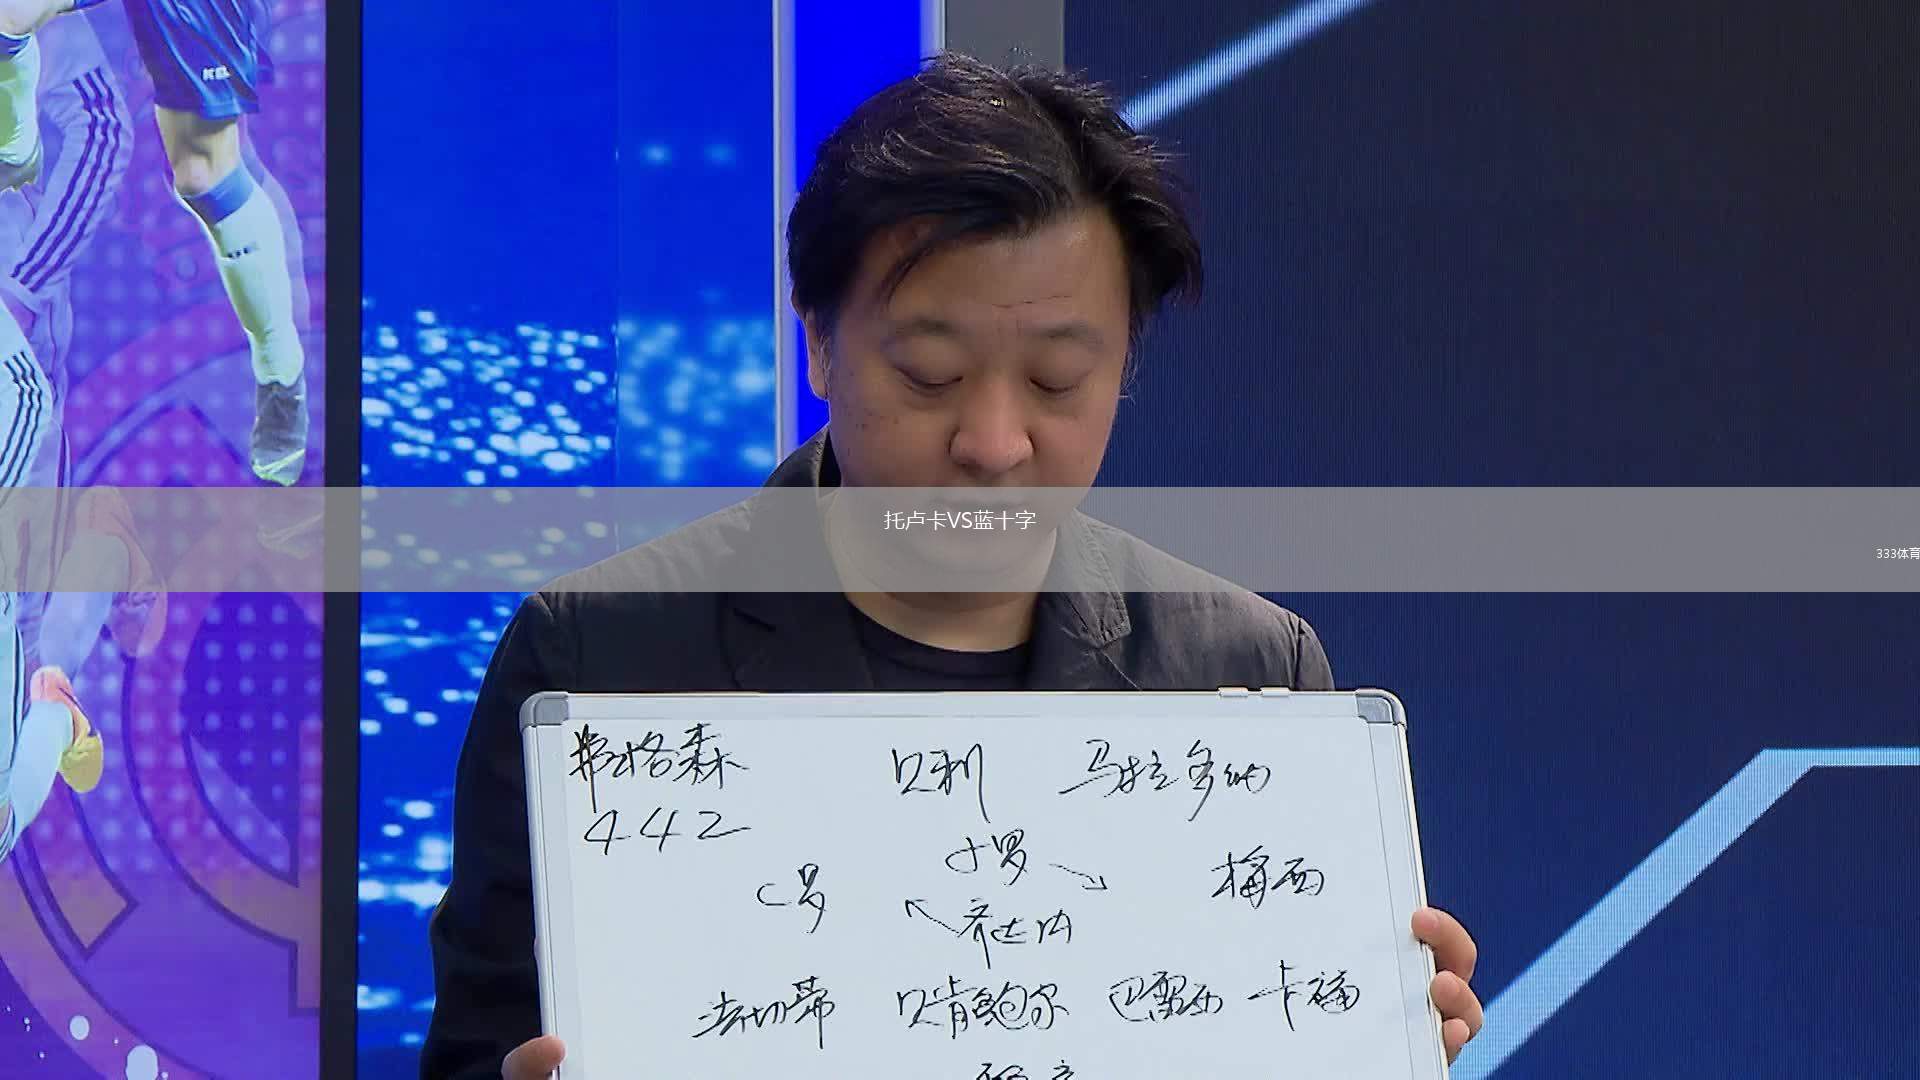 托卢卡VS蓝十字
333体育
弗格森 贝利 马拉多纳
442
小罗
C罗 梅西
齐达内
法切蒂 贝肯鲍尔 巴雷西 卡福